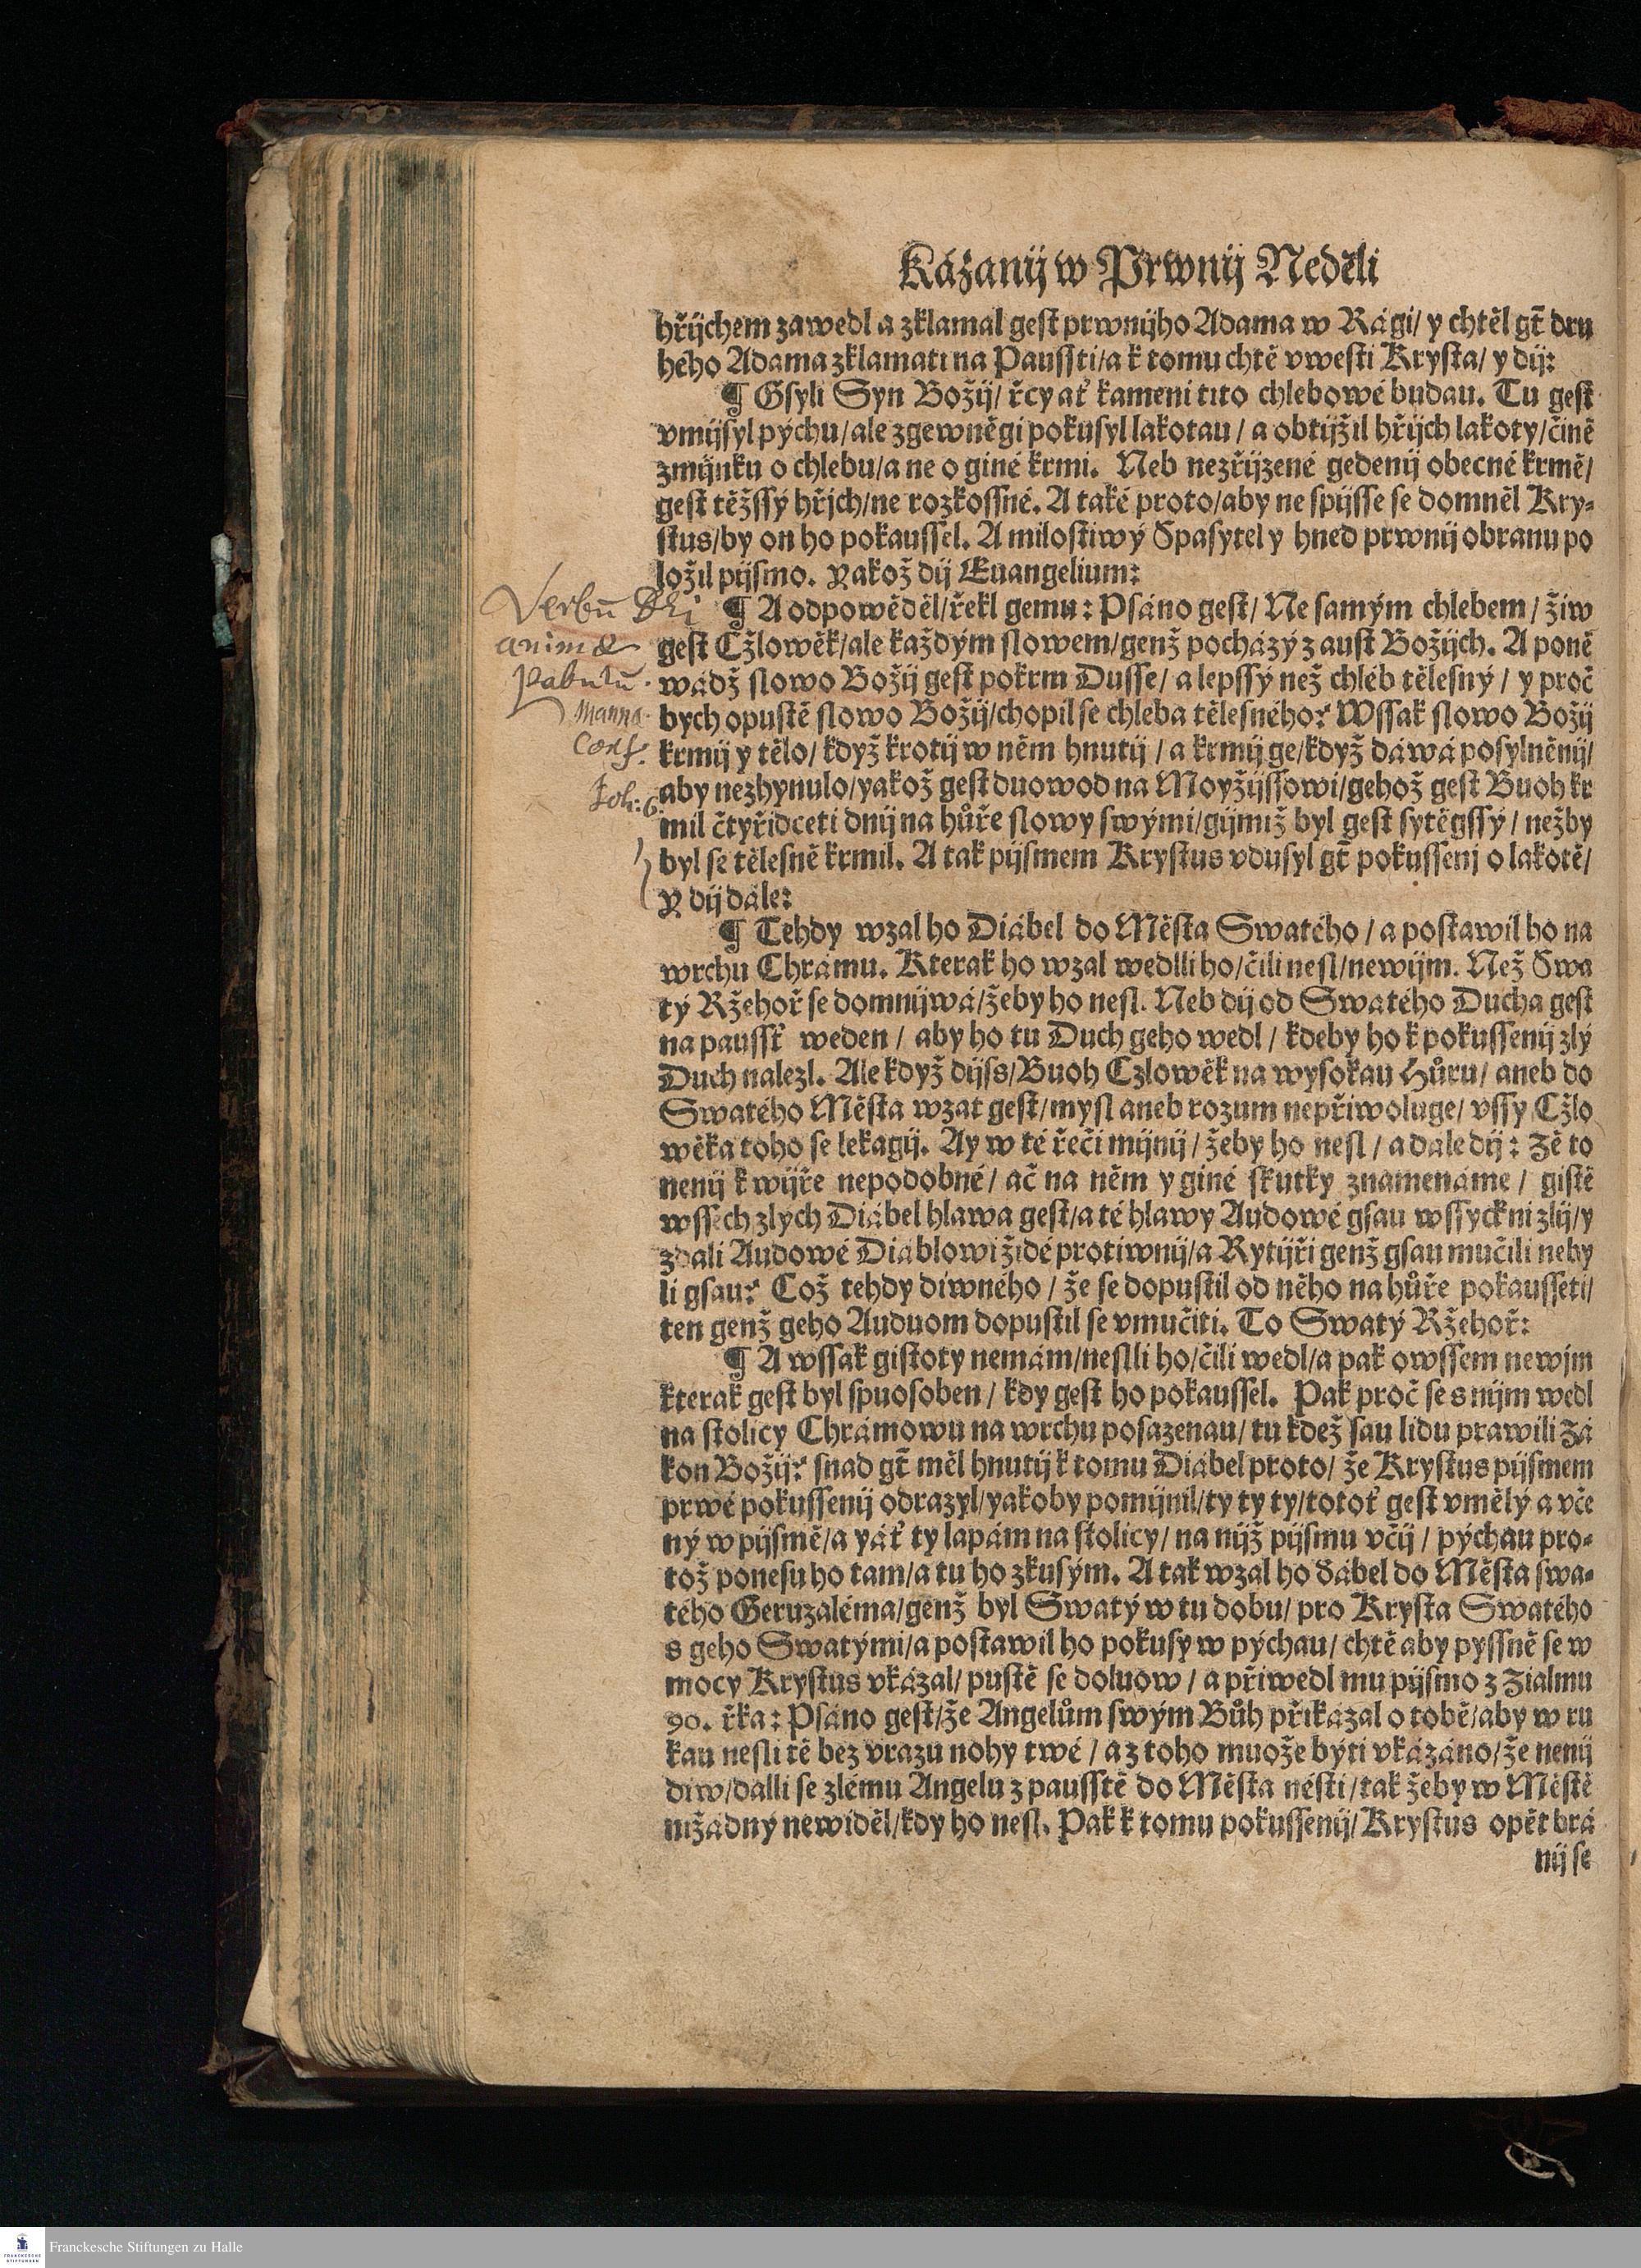 Kázanij w Prwnij Neděli
hřijchem zawedl a zklamal gest prwnijho Adama w Rági/ y chtěl gt̃ dru
hého Adama zklamati na Paussti/a k tomu chtě vwesti Krysta/ y dij:
¶ Gsyli Syn Božij/ řcy ať kameni tito chlebowé budau. Tu gest
vmijsyl pychu/ale zgewněgi pokusyl lakotau / a obtijžil hřijch lakoty/čině
zmijnku o chlebu/a ne o giné krmi. Neb nezřijzené gedenij obecné krmě/
gest těžssý hřjch/ne rozkossné. A také proto/aby ne spijsse se domněl Kry-
stus/by on ho pokaussel. A milostiwý Spasytel y hned prwnij obranu po
ložil pijsmo. Yakož dij Euangelium:
Verbū Dei
¶ A odpowěděl/řekl gemu: Psáno gest/ Ne samým chlebem / žiw
animæ
gest Cžlowěk/ale každým slowem/genž pocházý z aust Božijch. A poně
Pabulū.
wádž slowo Božij gest pokrm Dusse/ a lepssý než chléb tělesný / y proč
Manna
bych opustě slowo Božij/chopil se chleba tělesného? Wssak slowo Božij
krmij y tělo/ když krotij w něm hnutij / a krmij ge/když dáwá posylněnij/
Joh: 6.
aby nezhynulo/yakož gest duowod na Moyžijssowi/gehož gest Buoh kr
mil čtyřidceti dnij na hůře slowy swými/gijmiž byl gest sytěgssý / nežby
byl se tělesně krmil. A tak pijsmem Krystus vdusyl gt̃ pokussenj o lakotě/
Y dij dále:
¶ Tehdy wzal ho Diábel do Města Swatého / a postawil ho na
wrchu Chrámu. Kterak ho wzal wedlli ho/čili nesl/newijm. Než Swa
tý Ržehoř se domnijwá/žeby ho nesl. Neb dij od Swatého Ducha gest
na paussť weden / aby ho tu Duch geho wedl / kdeby ho k pokussenij zlý
Duch nalezl. Ale když dijs/Buoh Czlowěk na wysokau Hůru/ aneb do
Swatého Města wzat gest/mysl aneb rozum nepřiwoluge/ vssy Cžlo
wěka toho se lekagij. Ay w té řeči mijnij / žeby ho nesl / a dále dij: Zě to
nenij k wijře nepodobné/ ač na něm y giné skutky znamenáme / gistě
wssech zlych Diábel hlawa gest/a té hlawy Audowé gsau wssyckni zlij/y
zdali Audowé Diáblowi židé protiwnij/a Rytijři genž gsau mučili neby
li gsau? Což tehdy diwného / že se dopustil od něho na hůře pokausseti/
ten genž geho Auduom dopustil se vmučiti. To Swatý Ržehoř:
¶ A wssak gistoty nemám/neslli ho/čili wedl/a pak owssem newjm
kterak gest byl spuosoben / kdy gest ho pokaussel. Pak proč se s nijm wedl
na stolicy Chrámowu na wrchu posazenau/ tu kdež sau lidu prawili Zá
kon Božij? snad gt̃ měl hnutij k tomu Diábel proto/ že Krystus pijsmem
prwé pokussenij odrazyl/yakoby pomijnil/ty ty ty/totoť gest vmělý a vče
ný w pijsmě/a yáť ty lapám na stolicy/ na nijž pijsmu včij / pýchau pro-
tož ponesu ho tam/a tu ho zkusým. A tak wzal ho ďábel do Města swa-
tého Geruzaléma/genž byl Swatý w tu dobu/ pro Krysta Swatého
s geho Swatými/a postawil ho pokusy w pýchau/ chtě aby pyssně se w
mocy Krystus vkázal/ pustě se doluow / a přiwedl mu pijsmo z Zialmu
90. řka: Psáno gest/že Angelům swým Bůh přikázal o tobě/aby w ru
kau nesli tě bez vrazu nohy twé / a z toho muože býti vkázáno/že nenij
diw/dalli se zlému Angelu z pausstě do Města nésti/tak žeby w Městě
nižádný newiděl/kdy ho nesl. Pak k tomu pokussenij/Krystus opět brá
nij se
Franckesche Stiftungen zu Halle